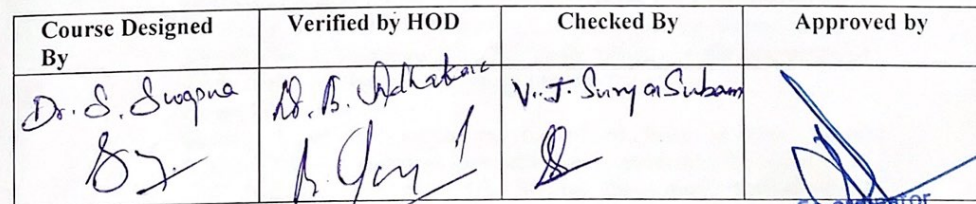 Course Designed By
Verified by HOD
Checked By
Approved by
Dr. S. Swapna
Dr. B.
V. J. Surya Subam